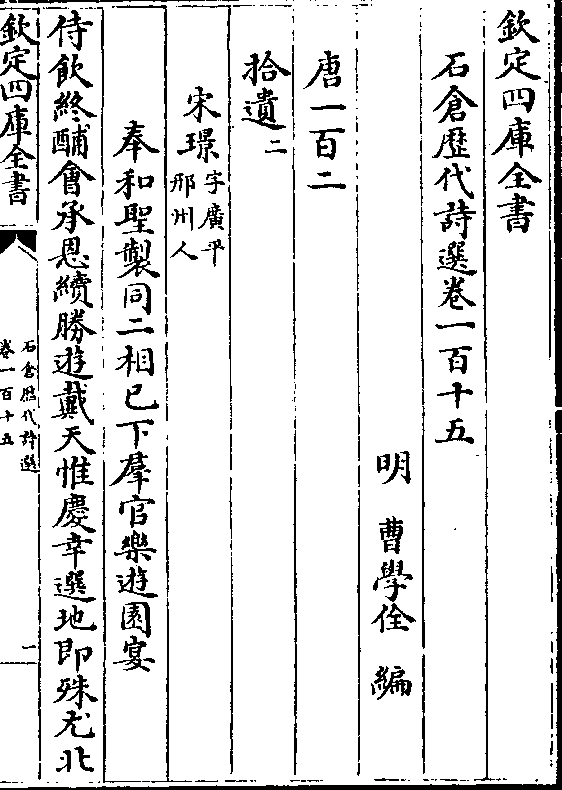 欽定四庫全書
石倉歷代詩選卷一百十五
明 曹學佺 編
唐一百二
拾遺二
宋璟字廣平邢州人
奉和聖製同二相已下羣官樂遊園宴
侍飲終酺會承恩續勝遊戴天惟慶幸選地即殊尤北
欽定四庫全書
石倉歷代詩選
卷一百十五
一